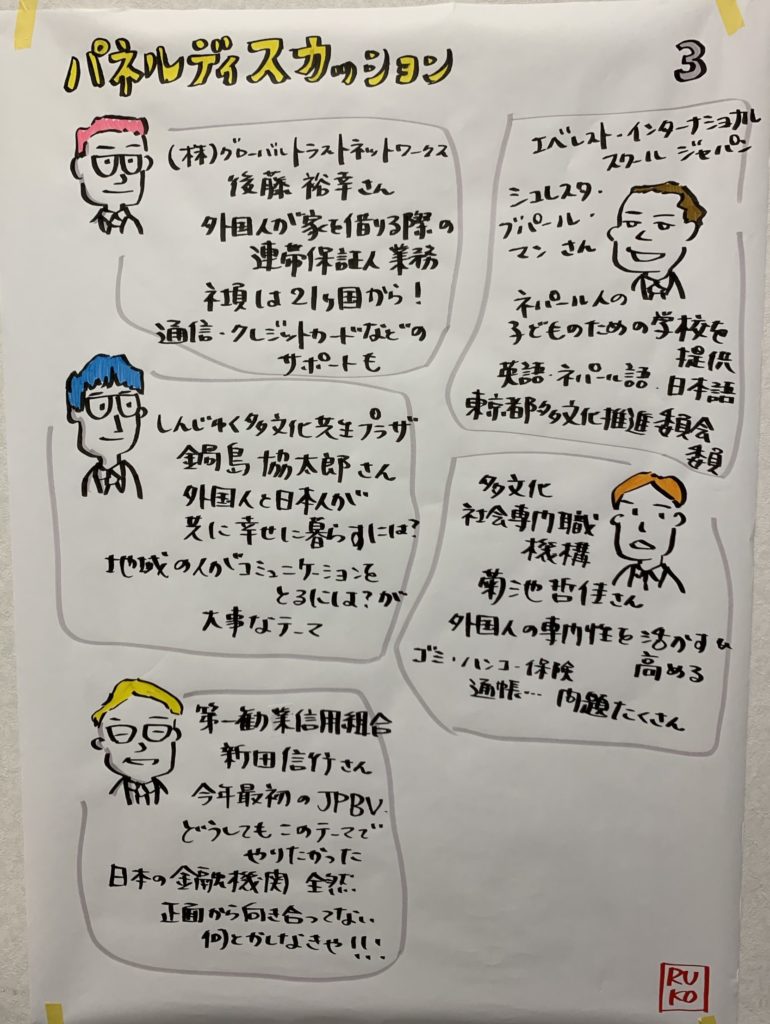 パネルディスカッション
3
(株)グローバルトラストネットワークス
後藤 裕幸さん
外国人が家を借りる際の
連帯保証人業務
社員は21ヶ国から!
通信・クレジットカードなどの
サポートも
エベレスト・インターナショナル
スクール ジャパン
シュレスタ・
ブパール・
マン さん
ネパール人の
子どものための学校を
提供
英語・ネパール語・日本語
東京都多文化推進委員会
委員
しんじゅく多文化共生プラザ
鍋島 協太郎さん
外国人と日本人が
共に幸せに暮らすには?
地域の人がコミュニケーションを
とるには?が
大事なテーマ
多文化
社会専門職
機構
菊池哲佳さん
外国人の専門性を活かす&
高める
ゴミ・ハンコ・保険
通帳… 問題たくさん
第一勧業信用組合
新田信行さん
今年最初のJPBV.
どうしてもこのテーマで
やりたかった
日本の金融機関 全然
正面から向き合ってない
何とかしなきゃ!!!
RU
KO